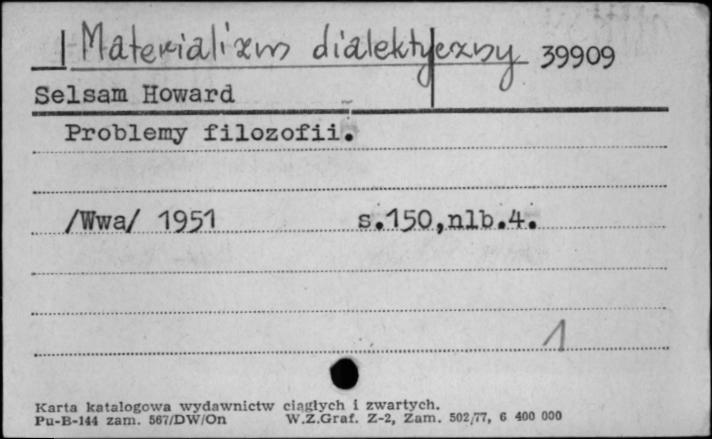 Materializm dialektyczny 39909
Selsam Howard
Problemy filozofii.
/Wwa/ 1951 s.150,nlb.4.
1
Karta katalogowa wydawnictw ciągłych i zwartych.
Pu-B-144 zam. 567/DW/On W.Z.Graf. Z-2, Zam. 502/77, 6 400 000